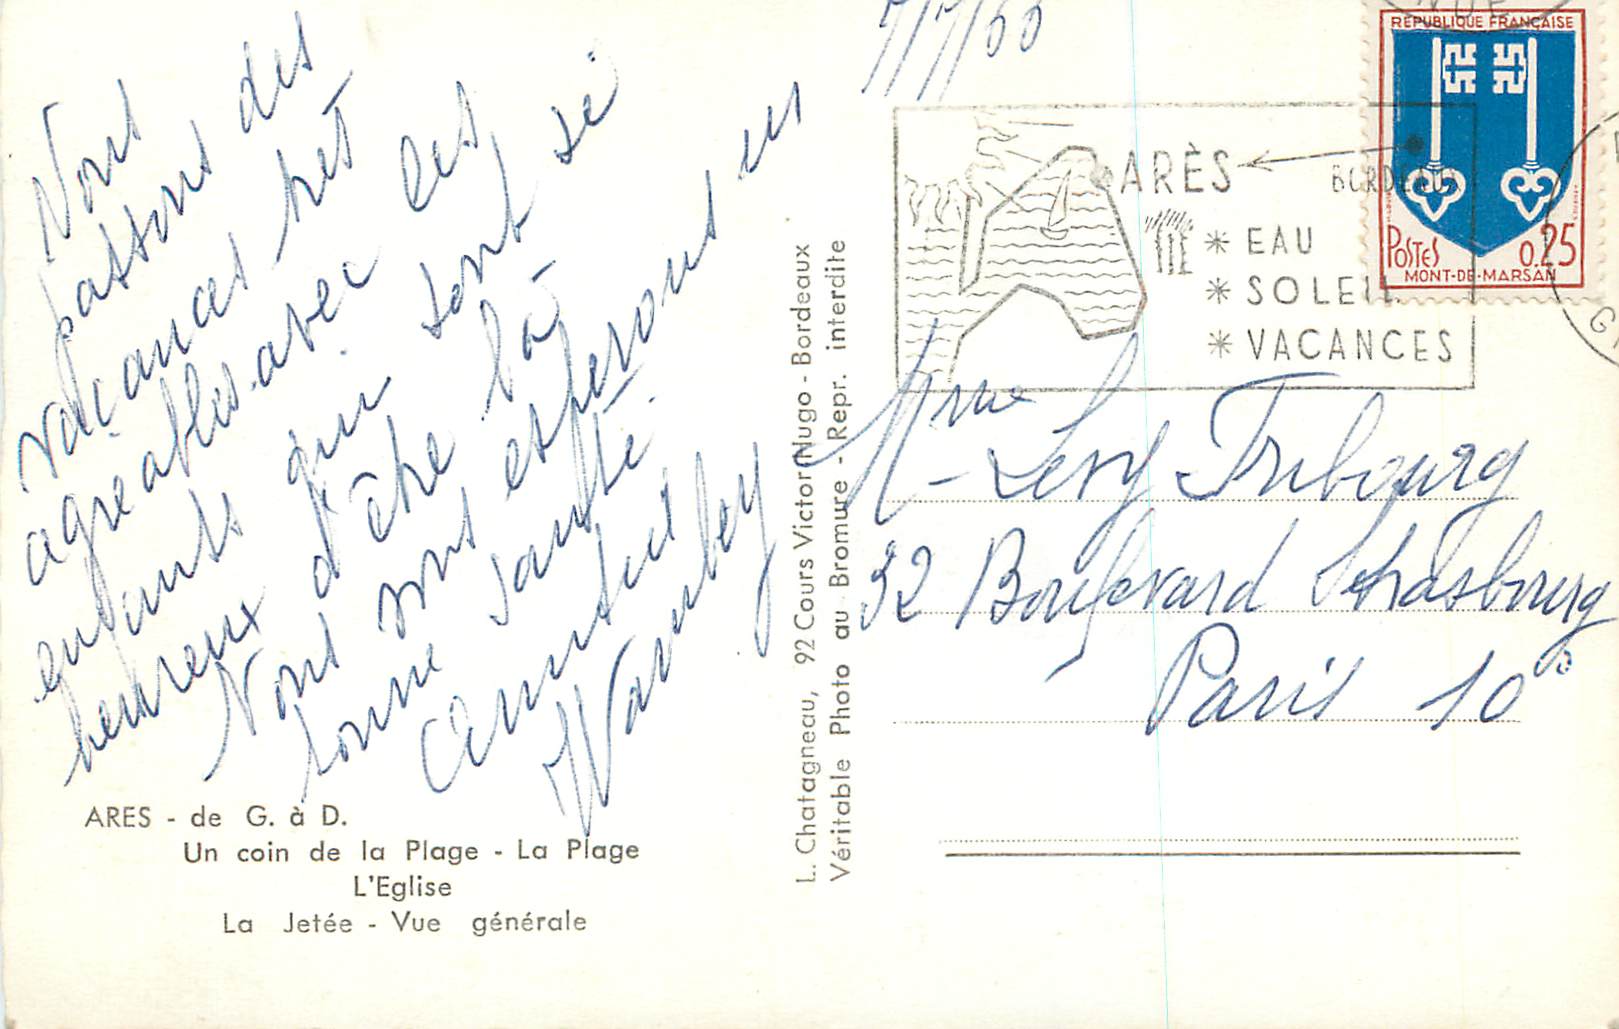 7/7/66
Nous
passons des
vacances très
agréables avec les
enfants qui sont si
heureux d'être là
Nous vous espérons en
bonne santé.
Amitiés
RÉPUBLIQUE FRANÇAISE
POSTES 0.25
MONT-DE-MARSAN
ARÈS
BORDEAUX
* EAU
* SOLEIL
* VACANCES
Mme
Levy Fribourg
32 Boulevard Strasbourg
Paris 10°
L. Chatagneau, 92 Cours Victor Hugo - Bordeaux
Véritable Photo au Bromure - Repr. interdite
ARES - de G. à D.
Un coin de la Plage - La Plage
L'Eglise
La Jetée - Vue générale